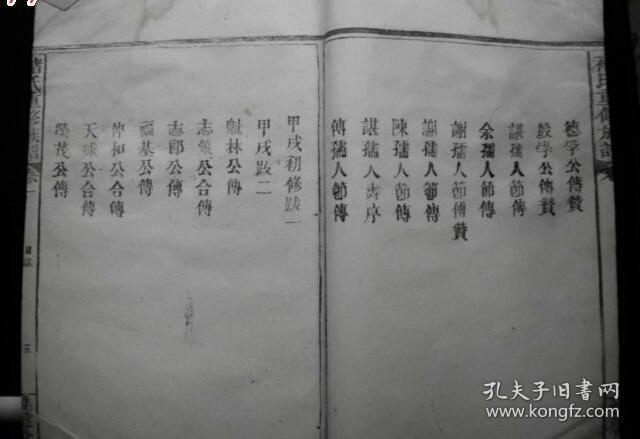 德孚公傳贊
毅學公傳贊
諶孺人節傳
余孺人節傳
謝孺人節傳贊
謝孺人節傳
陳孺人節傳
諶孺人壽序
傅孺人節傳
甲戌初修跋一
甲戌跋二
魁林公傳
公合傳
志郎公傳
福基公傳
仲和公合傳
天球公合傳
茂公傳
氏重修族譜
卷一
孔夫子旧书网
www.kongfz.com